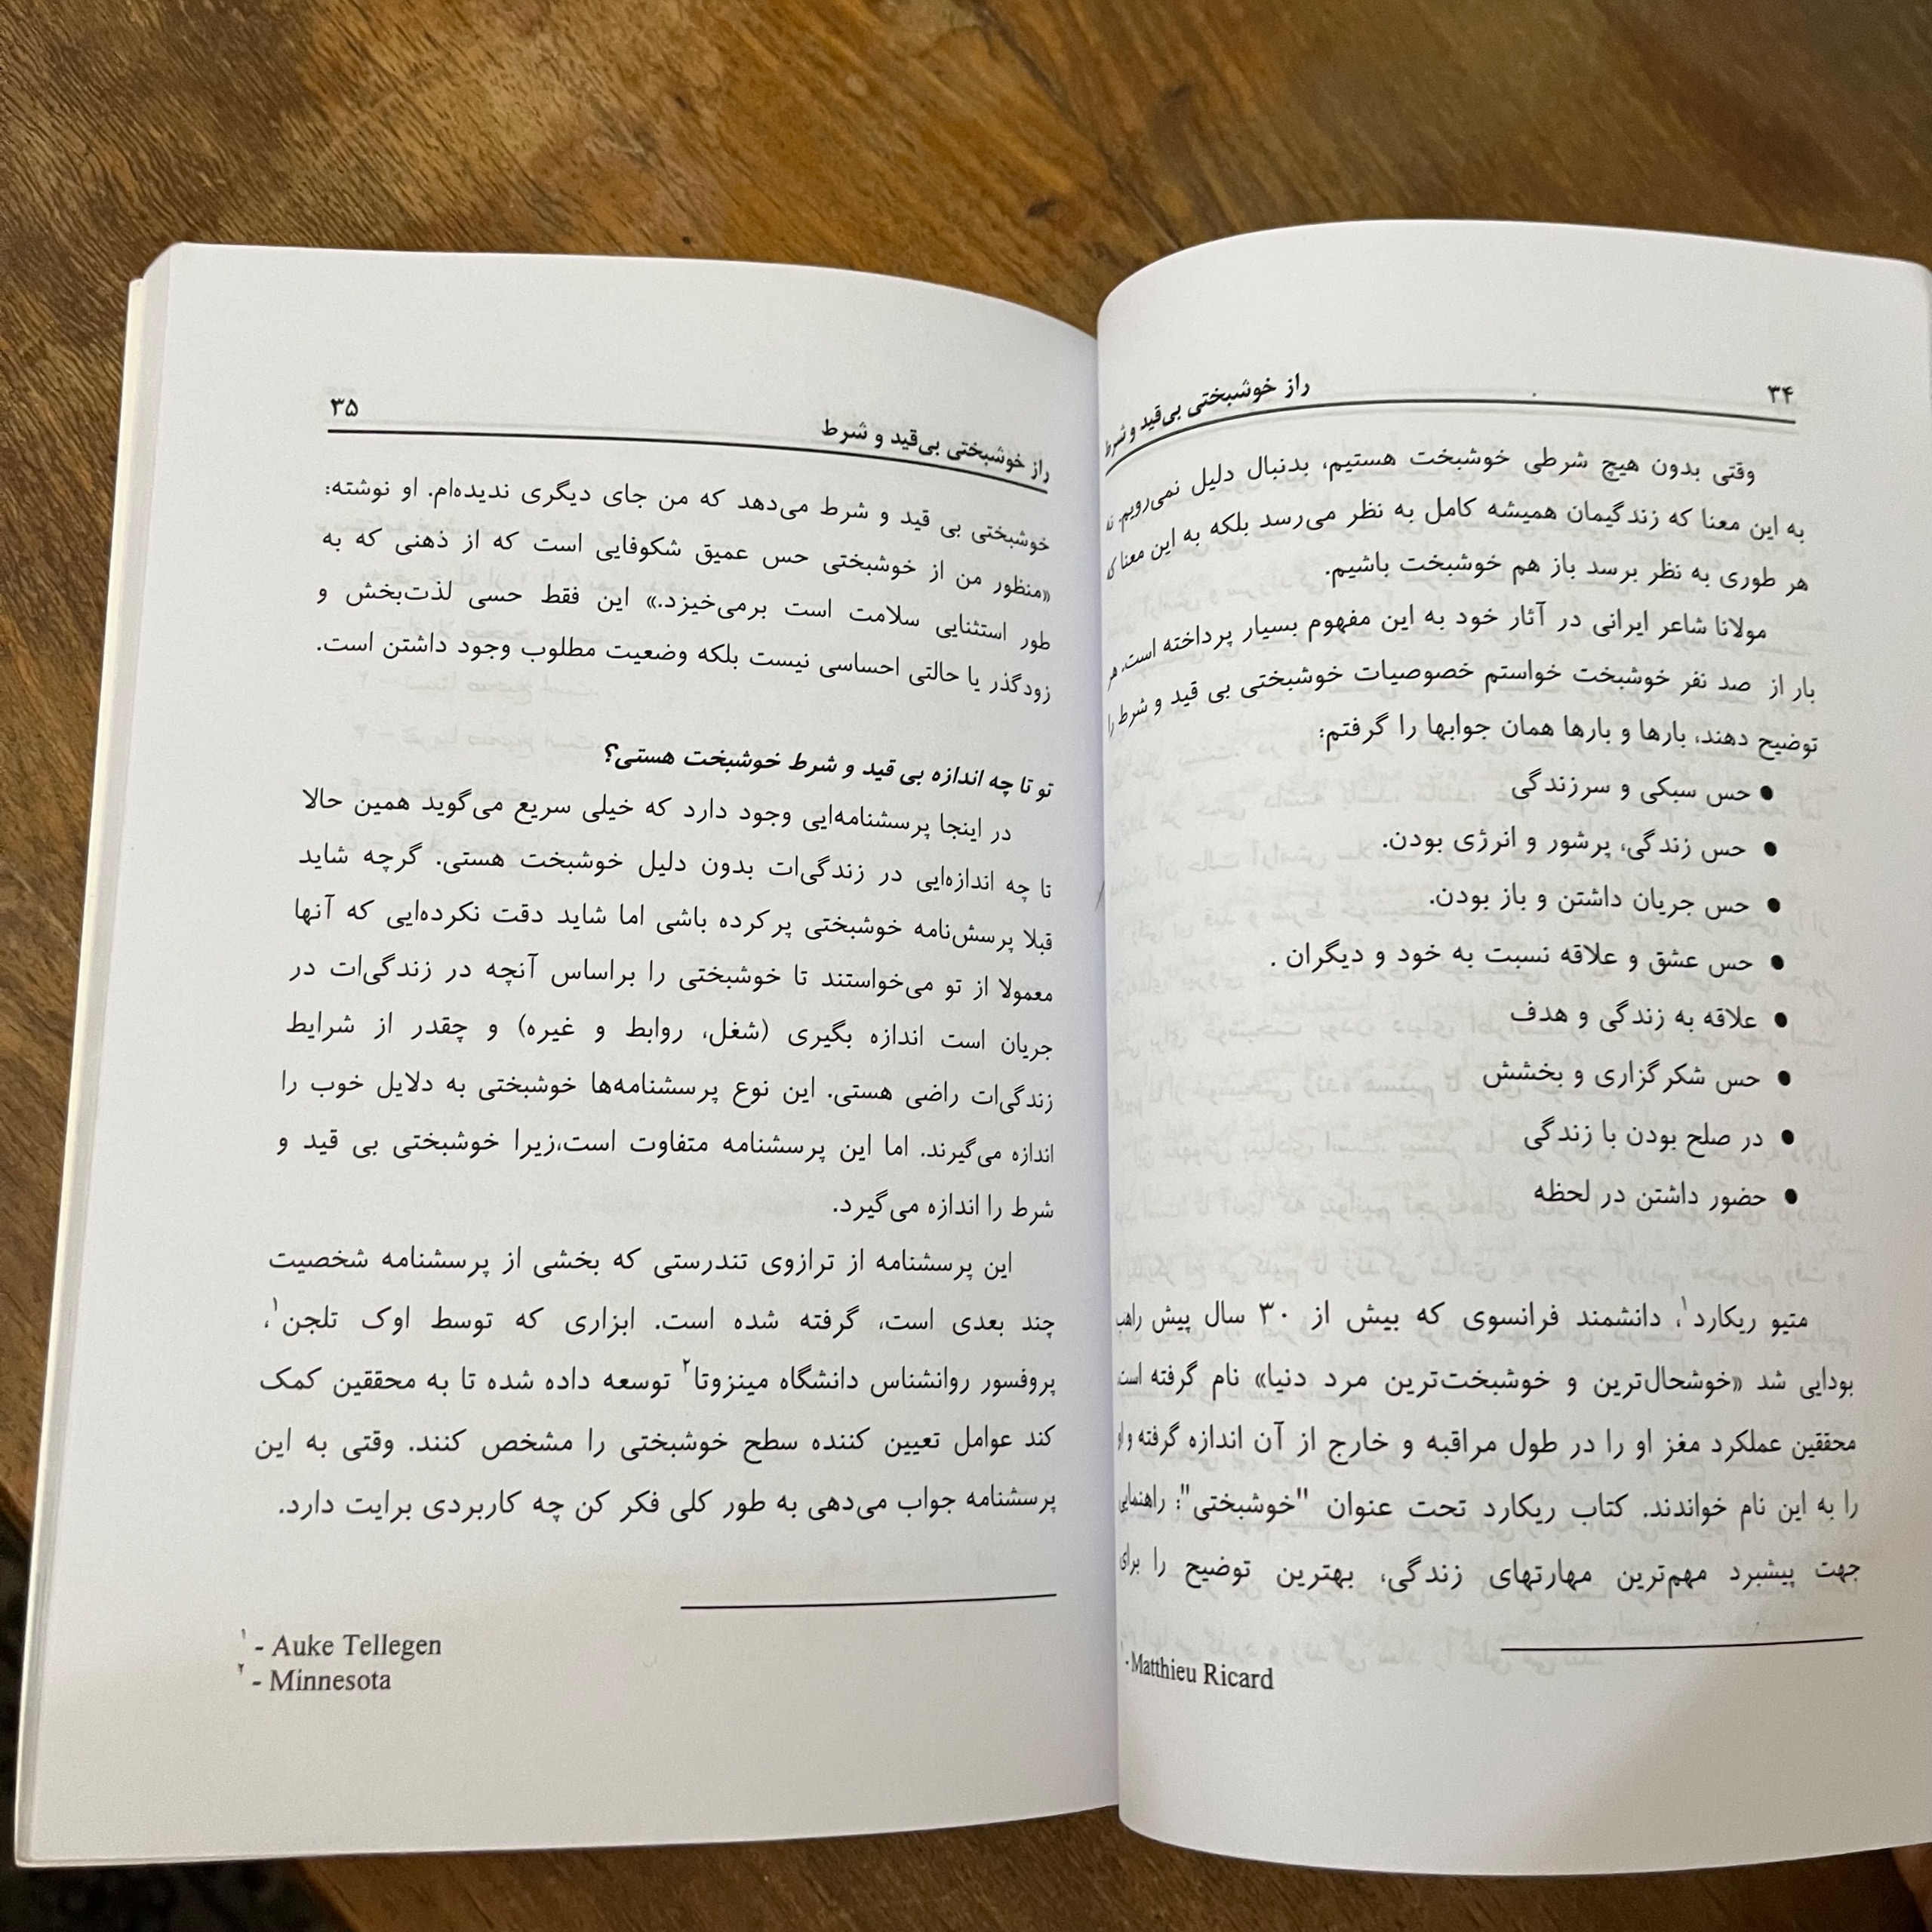 ۳۴
راز خوشبختی بی‌قید و شرط
وقتی بدون هیچ شرطی خوشبخت هستیم، بدنبال دلیل نمی‌رویم. نه
به این معنا که زندگیمان همیشه کامل به نظر می‌رسد بلکه به این معنا که
هر طوری به نظر برسد باز هم خوشبخت باشیم.
مولانا شاعر ایرانی در آثار خود به این مفهوم بسیار پرداخته است. هر
بار از صد نفر خوشبخت خواستم خصوصیات خوشبختی بی قید و شرط را
توضیح دهند، بارها و بارها همان جوابها را گرفتم:
● حس سبکی و سرزندگی
● حس زندگی، پرشور و انرژی بودن.
● حس جریان داشتن و باز بودن.
● حس عشق و علاقه نسبت به خود و دیگران .
● علاقه به زندگی و هدف
● حس شکرگزاری و بخشش
● در صلح بودن با زندگی
● حضور داشتن در لحظه
متیو ریکارد۱، دانشمند فرانسوی که بیش از ۳۰ سال پیش راهب
بودایی شد «خوشحال‌ترین و خوشبخت‌ترین مرد دنیا» نام گرفته است.
محققین عملکرد مغز او را در طول مراقبه و خارج از آن اندازه گرفته و او
را به این نام خواندند. کتاب ریکارد تحت عنوان "خوشبختی": راهنمایی
جهت پیشبرد مهم‌ترین مهارتهای زندگی، بهترین توضیح را برای
۱- Matthieu Ricard
راز خوشبختی بی‌قید و شرط
۳۵
خوشبختی بی قید و شرط می‌دهد که من جای دیگری ندیده‌ام. او نوشته:
«منظور من از خوشبختی حس عمیق شکوفایی است که از ذهنی که به
طور استثنایی سلامت است برمی‌خیزد.» این فقط حسی لذت‌بخش و
زودگذر یا حالتی احساسی نیست بلکه وضعیت مطلوب وجود داشتن است.
تو تا چه اندازه بی قید و شرط خوشبخت هستی؟
در اینجا پرسشنامه‌ایی وجود دارد که خیلی سریع می‌گوید همین حالا
تا چه اندازه‌ایی در زندگی‌ات بدون دلیل خوشبخت هستی. گرچه شاید
قبلا پرسش‌نامه خوشبختی پر کرده باشی اما شاید دقت نکرده‌ایی که آنها
معمولا از تو می‌خواستند تا خوشبختی را براساس آنچه در زندگی‌ات در
جریان است اندازه بگیری (شغل، روابط و غیره) و چقدر از شرایط
زندگی‌ات راضی هستی. این نوع پرسشنامه‌ها خوشبختی به دلایل خوب را
اندازه می‌گیرند. اما این پرسشنامه متفاوت است،زیرا خوشبختی بی قید و
شرط را اندازه می‌گیرد.
این پرسشنامه از ترازوی تندرستی که بخشی از پرسشنامه شخصیت
چند بعدی است، گرفته شده است. ابزاری که توسط اوک تلجن۱،
پروفسور روانشناس دانشگاه مینزوتا۲ توسعه داده شده تا به محققین کمک
کند عوامل تعیین کننده سطح خوشبختی را مشخص کنند. وقتی به این
پرسشنامه جواب می‌دهی به طور کلی فکر کن چه کاربردی برایت دارد.
۱- Auke Tellegen
۲- Minnesota